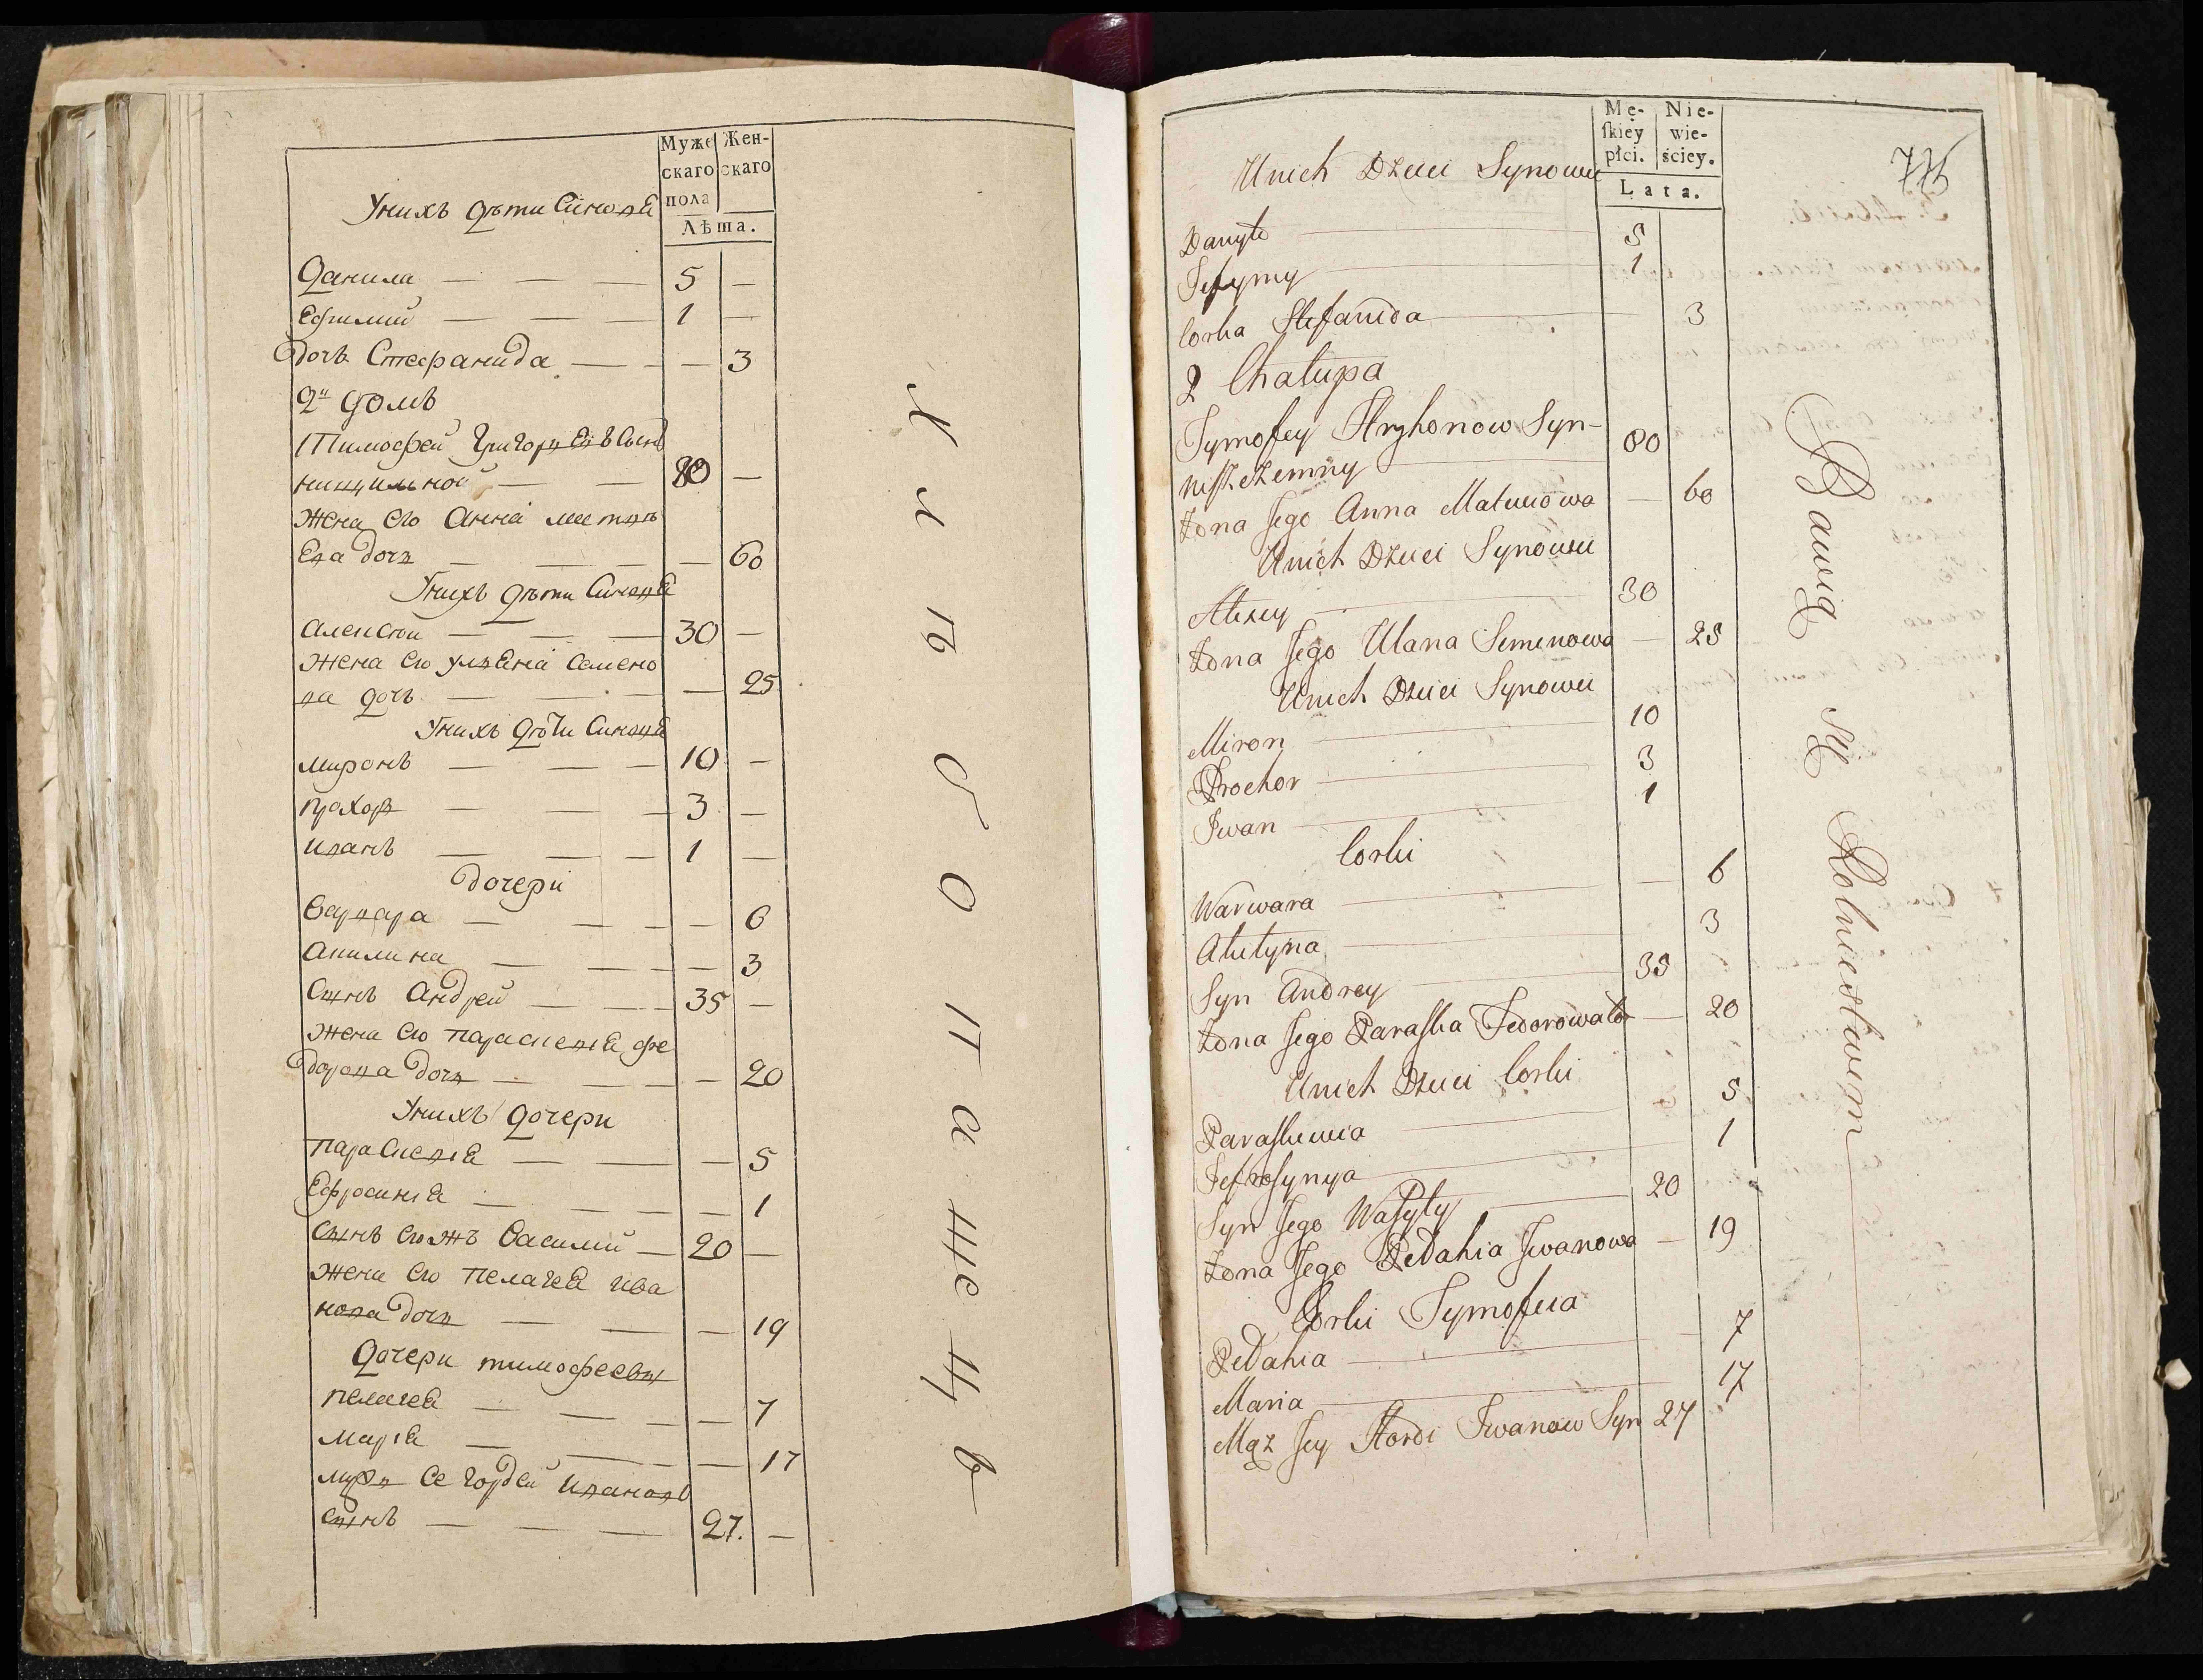 Муже
скаго
пола
Жен-
скаго
Лѣта.
Унихъ дѣти Синове
Данила — — — 5 —
Ефимий — — — 1 —
Дочь Стефанида — — — 3
2й домъ
Тимофей Григориевъ Сынъ
нищимной — — 80 —
Жена Его Анна мат
ева дочь — — — — 60
Унихъ дѣти Синове
Алексѣй — — — 30 —
Жена Его Улиана Семено
ва дочь — — — — 25
Унихъ дѣти Синове
миронъ — — — 10 —
прохор — — — 3 —
иванъ — — — 1 —
Дочери
Варвара — — — — 6
Акилина — — — — 3
Сынъ Андрей — — — 35 —
Жена Его параскевиа фе
дорова дочь — — — — 20
Унихъ дочери
параскевиа — — — 5
Ефросиниа — — — — 1
Сынъ Его жъ Василий — 20 —
Жена Его пелагеа ива
нова дочь — — — 19
Дочери тимофеевы
пелагеа — — — — 7
мариа — — — 17
мужъ Ее гордей ивановъ
сынъ — — — 27. —
Хлѣбопашецъ
Mę-
skiey
płci.
Nie-
wie-
ściey.
Lata.
776
Unich Dzieci Synowie
Danyło 5
Jefymy 1
Corka Stefanida 3
2 Chałupa
Tymofey Hryhorow Syn-
80
Żona Jego Anna Matwiiowa — 60
Unich Dzieci Synowie
Alexey 30
Żona Jego Ulana Semenowa — 25
Unich Dzieci Synowie
Miron 10
Prochor 3
Iwan 1
Corki
Warwara — 6
Akulyna 3
Syn Andrey 35
Żona Jego Paraska Fedorowa — 20
Unich Dzieci Corki
Paraskiewia 5
Jefrosynya 1
Syn Jego Wasyly 20
Żona Jego Pełahia Iwanowa — 19
Corki Tymofeia
Pełahia — 7
Maria 17
Mąż Jey Hordi Iwanow Syn 27
Bawią się Rolnictwem